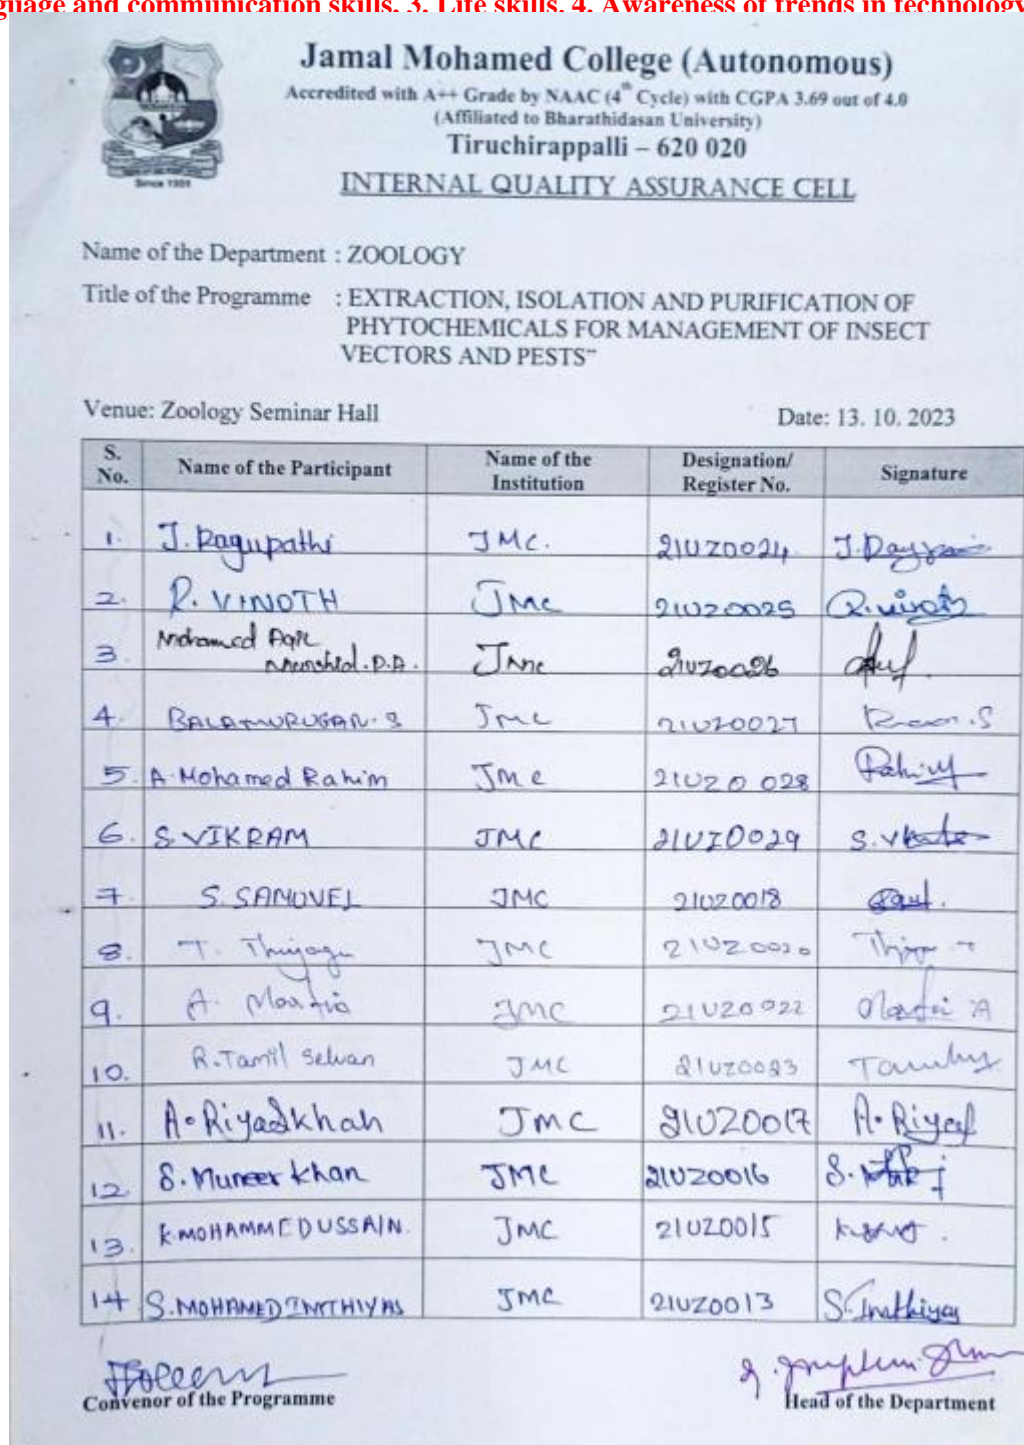 guage and communication skills. 3. Life skills. 4. Awareness of trends in technology
Jamal Mohamed College (Autonomous)
Accredited with A++ Grade by NAAC (4th Cycle) with CGPA 3.69 out of 4.0
(Affiliated to Bharathidasan University)
Tiruchirappalli – 620 020
Since 1951
INTERNAL QUALITY ASSURANCE CELL
Name of the Department : ZOOLOGY
Title of the Programme : EXTRACTION, ISOLATION AND PURIFICATION OF
PHYTOCHEMICALS FOR MANAGEMENT OF INSECT
VECTORS AND PESTS"
Venue: Zoology Seminar Hall Date: 13. 10. 2023
S. No. Name of the Participant Name of the Institution Designation/ Register No. Signature
1. J. Ragupathi JMC. 21UZ0024
2. R. VINOTH JMC 21UZ0025 R. vinoth
3. Mohamed JMC 21UZ0026
4. BALAMURUGAN. S JMC 21UZ0027
5. A. Mohamed Rahim JMC 21UZ0028
6. S. VIKRAM JMC 21UZ0029
7. S. SAMUVEL JMC 21UZ0018
8. T. Thiyagu JMC 21UZ0020
9. A. JMC 21UZ0022
10. R. Tamil Selvan JMC 21UZ0023
11. A. Riyadkhan JMC 21UZ0017 A. Riyad
12 S. Muneer Khan JMC 21UZ0016
13. K. MOHAMMED USSAIN. JMC 21UZ0015
14 S. MOHAMED INTHIYAS JMC 21UZ0013 S. Inathiyas
Convenor of the Programme Head of the Department